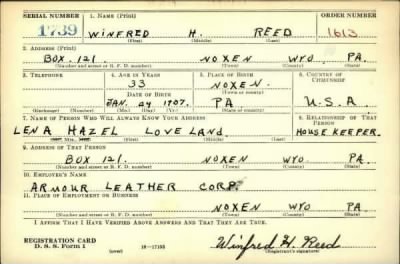 SERIAL NUMBER 1. NAME (Print) ORDER NUMBER
1739 WINFRED H. REED 1613
(First) (Middle) (Last)
2. ADDRESS (Print)
BOX 121. NOXEN WYO PA.
(Number and street or R. F. D. number) (Town) (County) (State)
3. TELEPHONE 4. AGE IN YEARS 5. PLACE OF BIRTH 6. COUNTRY OF CITIZENSHIP
33 NOXEN.
DATE OF BIRTH (Town or county)
JAN. 24 1907. PA U.S.A.
(Exchange) (Number) (Mo.) (Day) (Yr.) (State or country)
7. NAME OF PERSON WHO WILL ALWAYS KNOW YOUR ADDRESS 8. RELATIONSHIP OF THAT PERSON
LENA HAZEL LOVELAND. HOUSE KEEPER.
(Mr., Mrs., Miss) (First) (Middle) (Last)
9. ADDRESS OF THAT PERSON
BOX 121. NOXEN WYO PA.
(Number and street or R. F. D. number) (Town) (County) (State)
10. EMPLOYER'S NAME
ARMOUR LEATHER CORP.
11. PLACE OF EMPLOYMENT OR BUSINESS
NOXEN WYO PA
(Number and street or R. F. D. number) (Town) (County) (State)
I AFFIRM THAT I HAVE VERIFIED ABOVE ANSWERS AND THAT THEY ARE TRUE.
REGISTRATION CARD
D. S. S. Form 1 (over) 16—17105 Winfred H. Reed
(Registrant's signature)